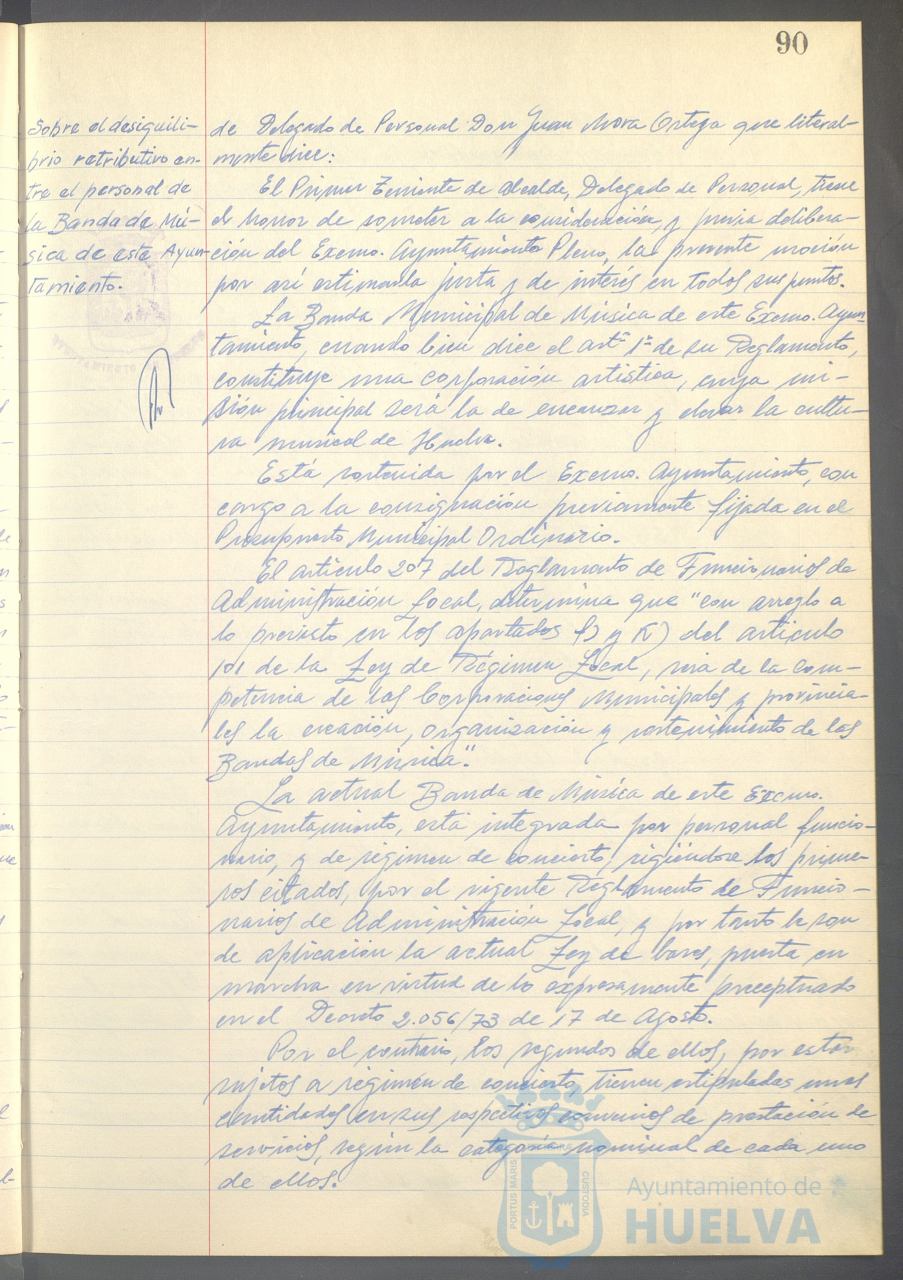 90
Sobre el desequili-
brio retributivo en-
tre el personal de
la Banda de Mú-
sica de este Ayun-
tamiento.
de Delegado de Personal Don Juan Mora Ortega que literal-
mente dice:
El Primer Teniente de Alcalde, Delegado de Personal, tiene
el honor de someter a la consideración, y previa delibera-
ción del Excmo. Ayuntamiento Pleno, la presente moción
por así estimarla justa y de interés en todos sus puntos.
La Banda Municipal de Música de este Excmo. Ayun-
tamiento, cuando bien dice el artº 1º de su Reglamento,
constituye una corporación artística, cuya mi-
sión principal será la de encauzar y elevar la cultu-
ra musical de Huelva.
Está sostenida por el Excmo. Ayuntamiento, con
cargo a la consignación previamente fijada en el
Presupuesto Municipal Ordinario.
El artículo 207 del Reglamento de Funcionarios de
Administración Local, determina que "con arreglo a
lo previsto en los apartados y K) del artículo
101 de la Ley de Régimen Local, será de la com-
petencia de las Corporaciones Municipales y provincia-
les la creación, organización y sostenimiento de las
Bandas de Música".
La actual Banda de Música de este Excmo.
Ayuntamiento, está integrada por personal funcio-
nario, y de régimen de concierto, rigiéndose los prime-
ros citados, por el vigente Reglamento de Funcio-
narios de Administración Local, y por tanto le son
de aplicación la actual Ley de bases, puesta en
marcha en virtud de lo expresamente preceptuado
en el Decreto 2.056/73 de 17 de Agosto.
Por el contrario, los segundos de ellos, por estar
sujetos a régimen de concierto, tienen estipuladas unas
cantidades en sus respectivos convenios de prestación de
servicios, según la categoría nominal de cada uno
de ellos.
PORTUS MARIS
CUSTODIA
Ayuntamiento de
HUELVA